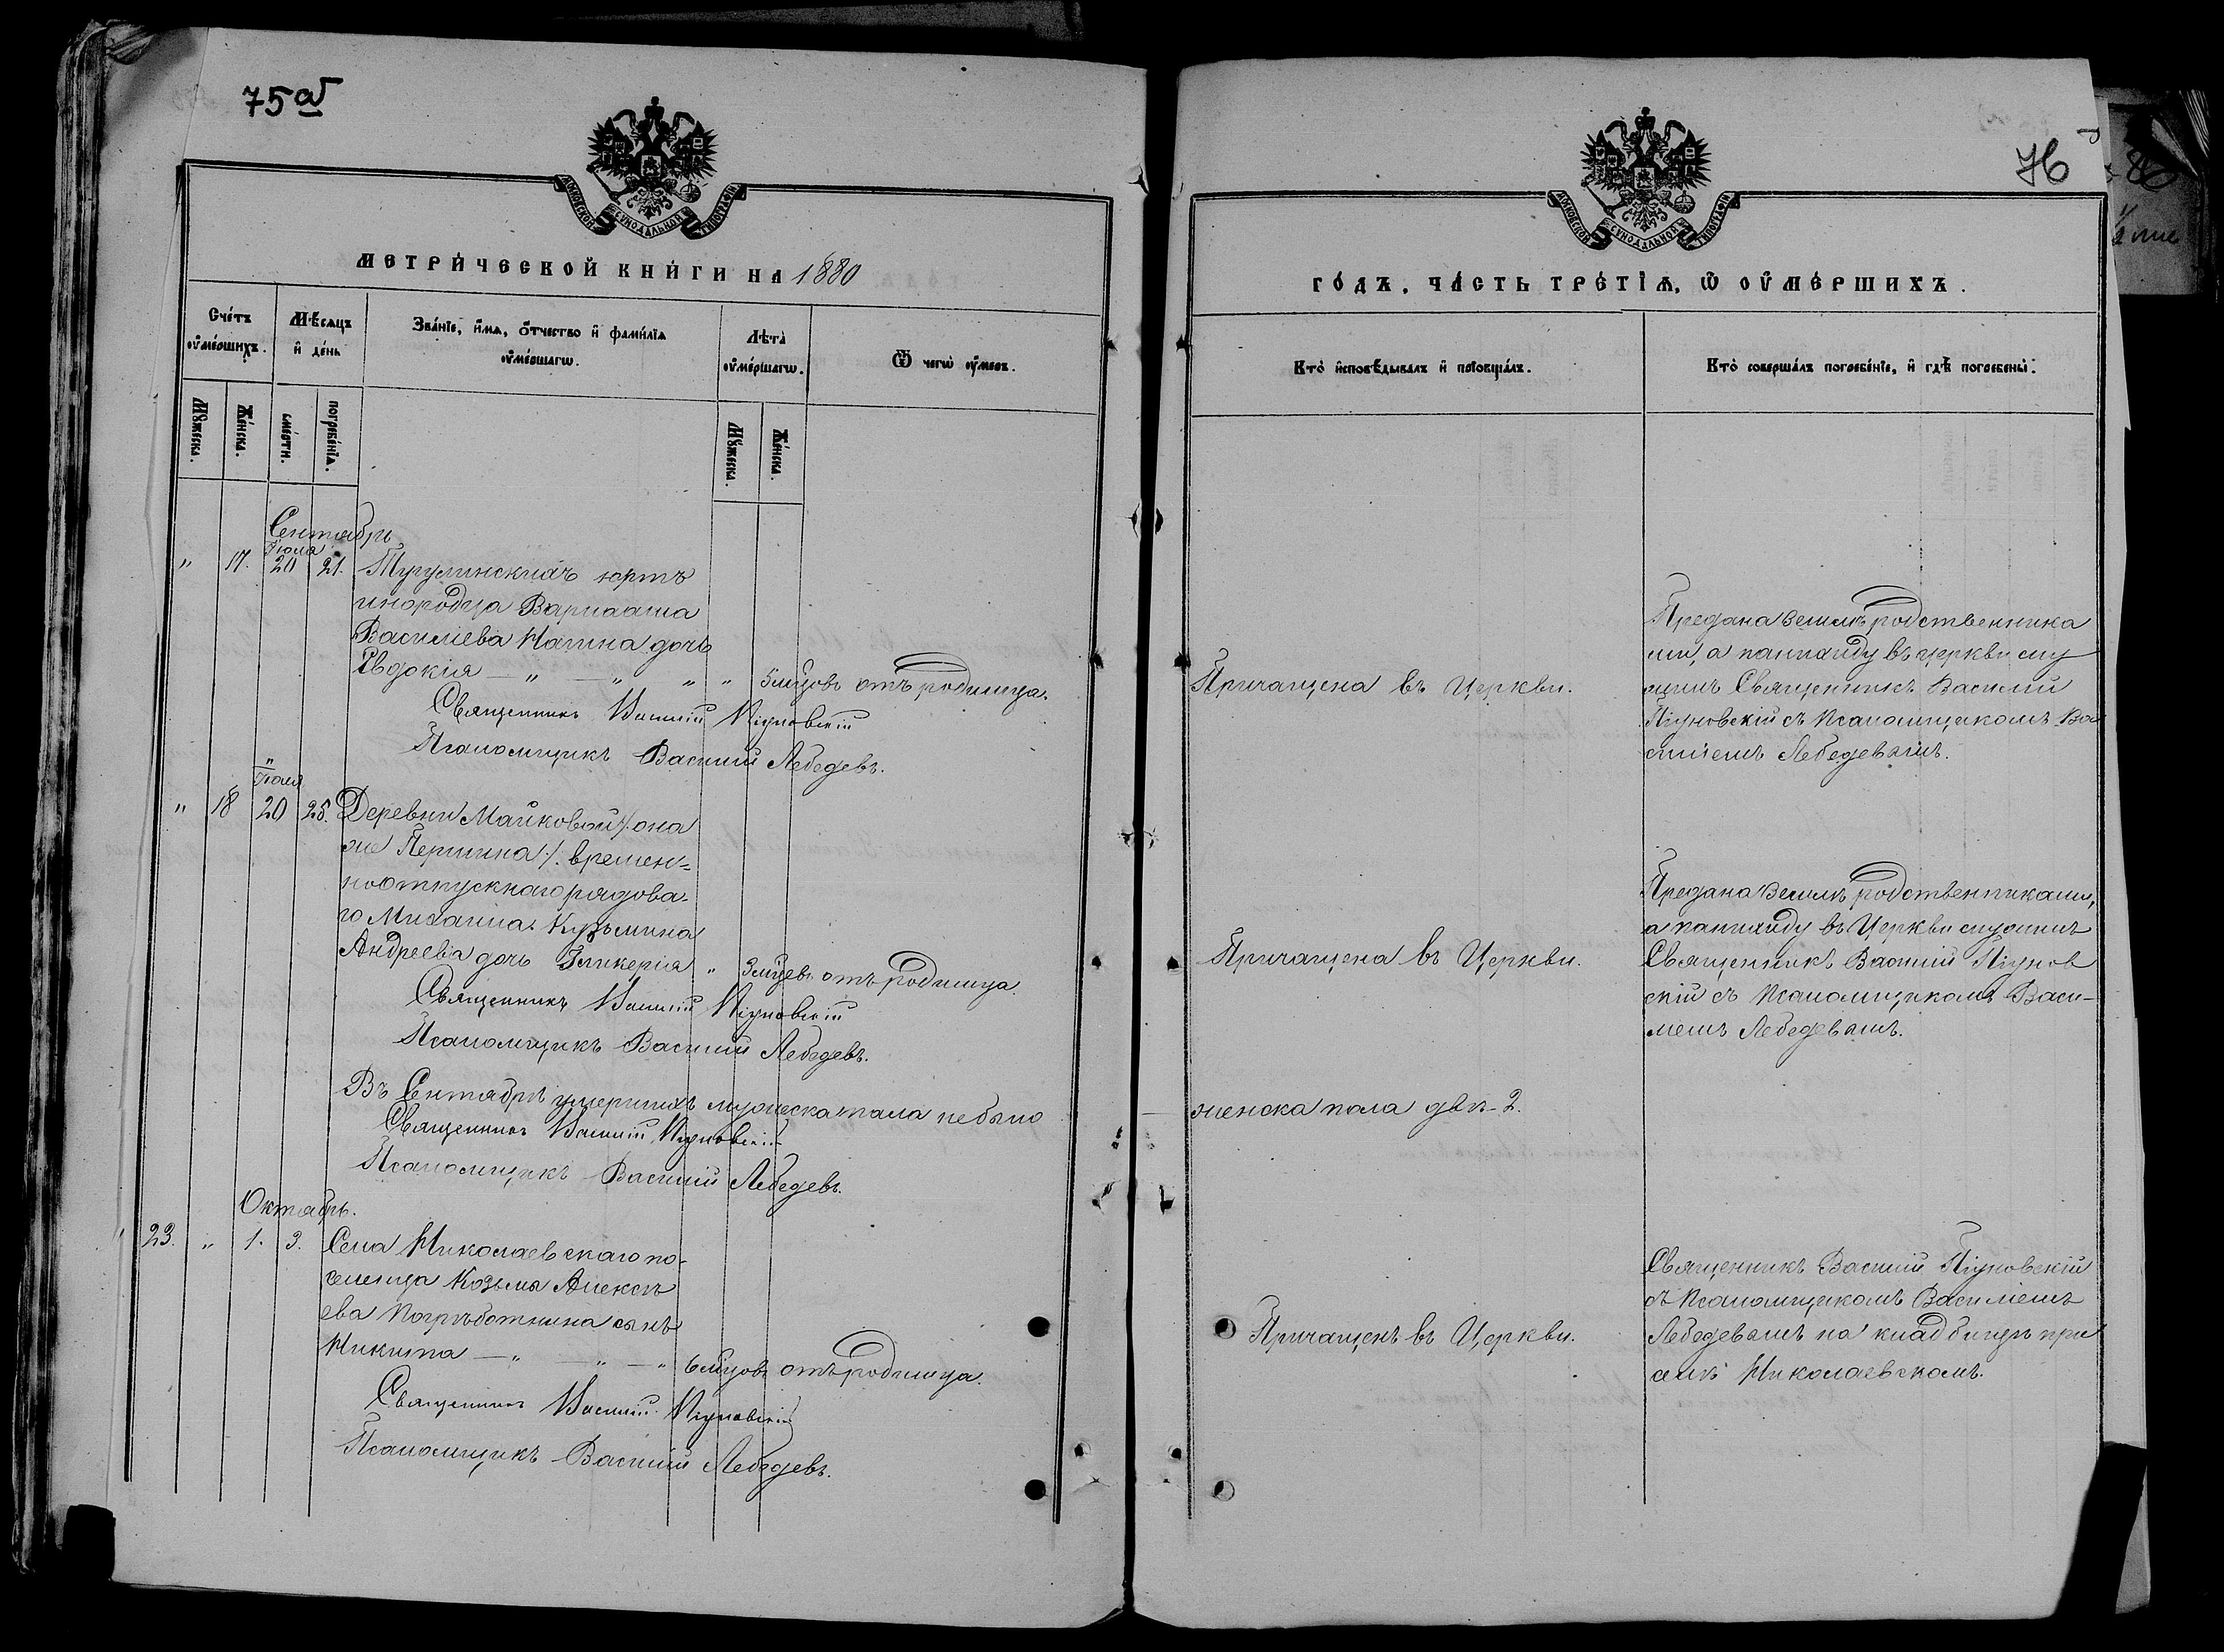 75 об
МОСКОВСКОЙ СѴНОДАЛЬНОЙ ТИПОГРАФІИ
МЕТРИ́ЧЕСКОЙ КНИ́ГИ НА 1880
Сче́тъ ᲂу҆ме́ршихъ.
Мѣ́сѧцъ и҆ де́нь
Зва́нїе, и҆́мѧ, ѻ҆́тчество и҆ фами́лїѧ ᲂу҆ме́ршагѡ.
Лѣта̀ ᲂу҆ме́ршагѡ.
Ѿ чегѡ̀ ᲂу҆́меръ.
Мꙋ́жеска.
Же́нска.
сме́рти.
погребе́нїѧ.
Мꙋ́жеска.
Же́нска.
Сентябрь
Іюля
" 17. 20 21. Тугулинскихъ юртъ
инородца Варлаама
Василіева Нагина дочь
Евдокія — " — " " " 5 мѣцовъ отъ родимца.
Священникъ Василій Піуновскій
Псаломщикъ Василій Лебедевъ.
"
Іюля
" 18 20 25. Деревни Майковой /: она
же Першина :/ времен=
ноотпускнаго рядова-
го Михаила Кузьмина
Андреева дочь Гликерія " 3 мѣцевъ отъ родимца.
Священникъ Василій Піуновскій
Псаломщикъ Василій Лебедевъ.
Въ Сентябрѣ умершихъ мужеска пола небыло
Священникъ Василій Піуновскій
Псаломщикъ Василій Лебедевъ.
Октябрь.
23. " 1. 3. Села Николаевскаго по-
селенца Козьмы Алексѣ
ева сынъ
Никита — " — " — " 6 мѣцовъ отъ родимца.
Священникъ Василій Піуновскій
Псаломщикъ Василій Лебедевъ.
76
МОСКОВСКОЙ СѴНОДАЛЬНОЙ ТИПОГРАФІИ
ГО́ДЪ. ЧА́СТЬ ТРЕ́ТЇѦ, Ѡ҆ ОУ҆МЕ́РШИХЪ.
Кто̀ и҆сповѣ́дывалъ и҆ прїобща́лъ.
Кто̀ соверша́лъ погребе́нїе, и҆ гдѣ̀ погребены̀.
Предана землѣ родственника
ми, а панихиду въ церкви слу
жилъ Священникъ Василій
Причащена въ Церкви.
Піуновскій съ Псаломщикомъ Ва
силіемъ Лебедевымъ.
Предана землѣ родственниками,
а панихиду въ Церкви служилъ
Причащена въ Церкви.
Священникъ Василій Піунов
скій съ Псаломщикомъ Васи-
ліемъ Лебедевымъ.
женска пола двѣ - 2.
Священникъ Василій Піуновскій
съ Псаломщикомъ Василіемъ
Причащенъ въ Церкви.
Лебедевымъ на кладбищѣ при
селѣ Николаевскомъ.